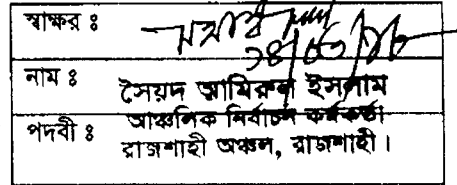 স্বাক্ষর ঃ
নাম ঃ সৈয়দ আমিরুল ইসলাম
পদবী ঃ আঞ্চলিক নির্বাচন কর্মকর্তা
রাজশাহী অঞ্চল, রাজশাহী।